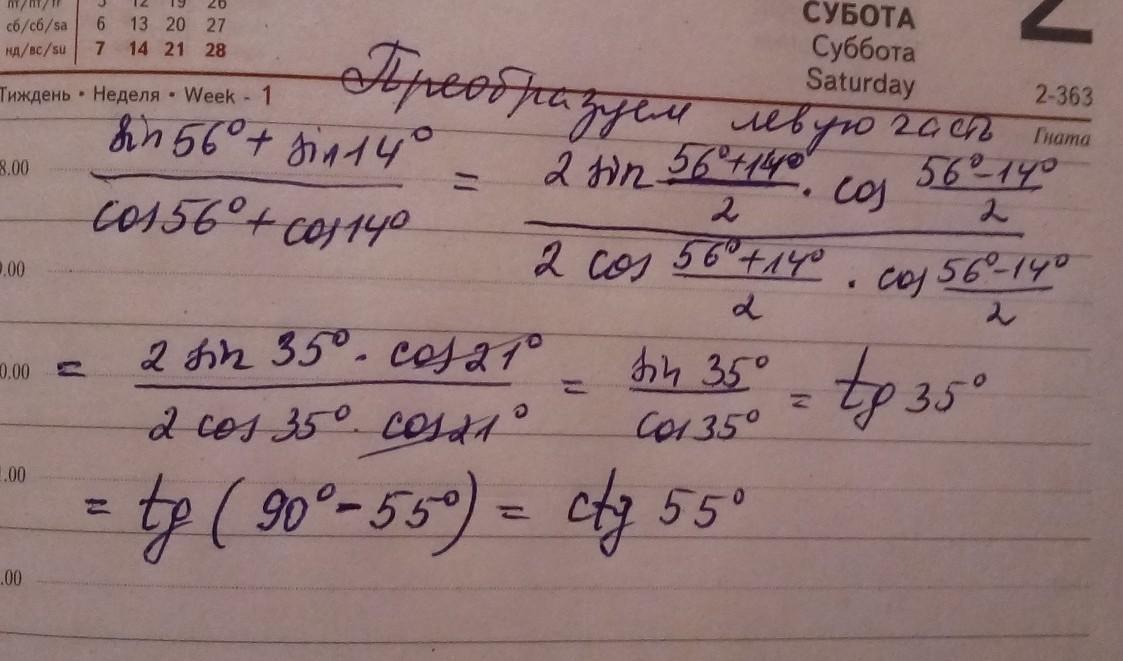 пт/пт/fr 5 12 19 26
сб/сб/sa 6 13 20 27
нд/вс/su 7 14 21 28
СУБОТА
Суббота
Saturday
2
Тиждень • Неделя • Week - 1
2-363
Гната
Преобразуем левую часть
8.00
sin 56° + sin 14° / cos 56° + cos 14° = 2 sin (56°+14°)/2 · cos (56°-14°)/2 / 2 cos (56°+14°)/2 · cos (56°-14°)/2
.00
0.00
= 2 sin 35° · cos 21° / 2 cos 35° · cos 21° = sin 35° / cos 35° = tg 35°
.00
= tg (90° - 55°) = ctg 55°
.00